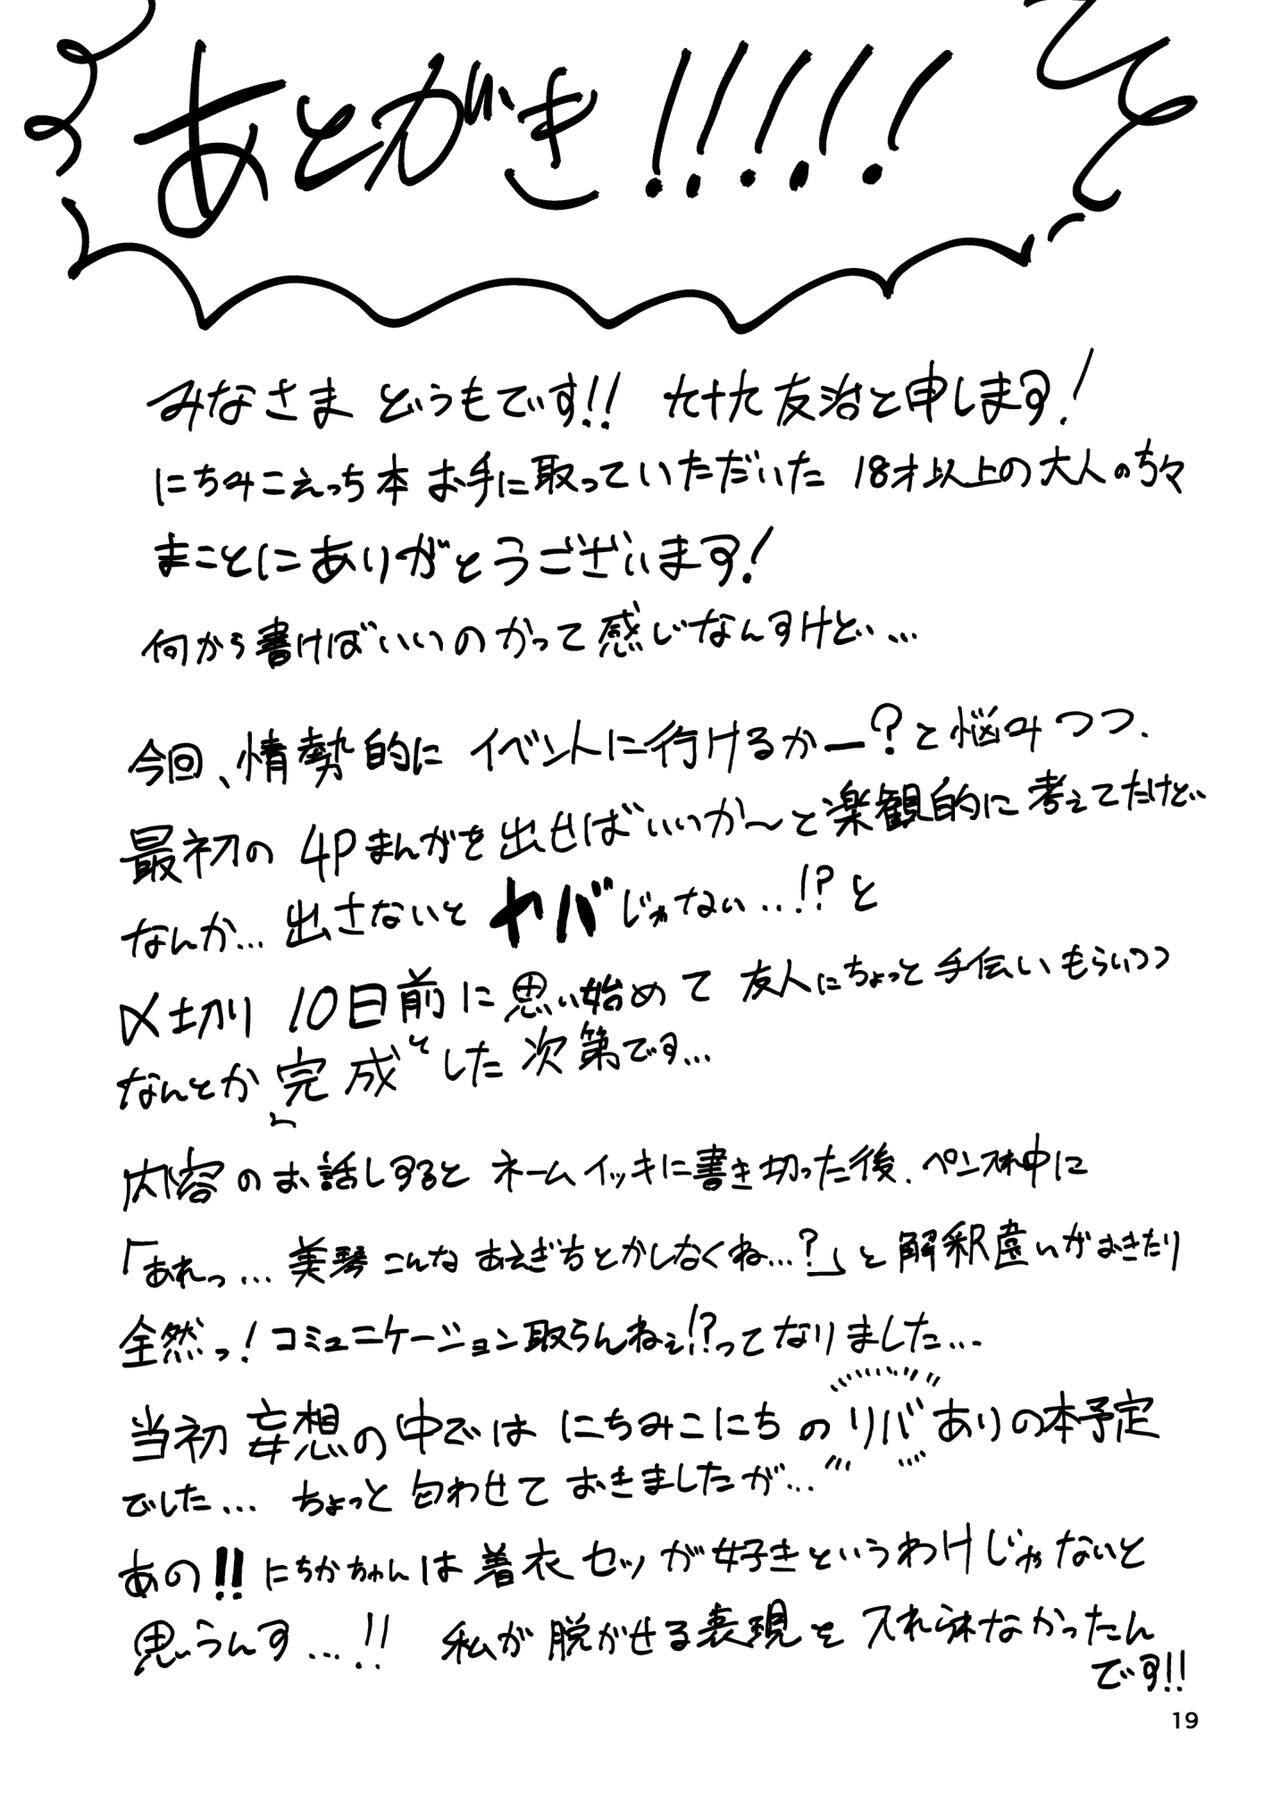 あとがき!!!!!
みなさま どうもです!! 九十九 友治と申します!
にちみこえっち本 お手に取っていただいた 18才以上の大人の方々
まことにありがとうございます!
何から書けばいいのかって感じなんすけど…
今回、情勢的に イベントに行けるかー?と悩みつつ、
最初の 4Pまんがを出せばいいか〜と楽観的に考えてたけど…
なんか… 出さないと ヤバじゃない…!?と
〆切り 10日前に思い始めて 友人にちょっと手伝いもらいつつ
なんとか完成とした次第です…
内容のお話しすると ネームイッキに書き切った後、ペン入れ中に
「あれっ… 美琴こんなあえぎ方とかしなくね…?」と解釈違いがおきたり
全然っ! コミュニケーション取らんねぇ!?ってなりました…
当初 妄想の中では にちみこにちのリバありの本予定
でした… ちょっと匂わせておきましたが…
あの!! にちかちゃんは着衣セッが好きというわけじゃないと
思うんす…!! 私が脱がせる表現を入れられなかったん
です!!
19